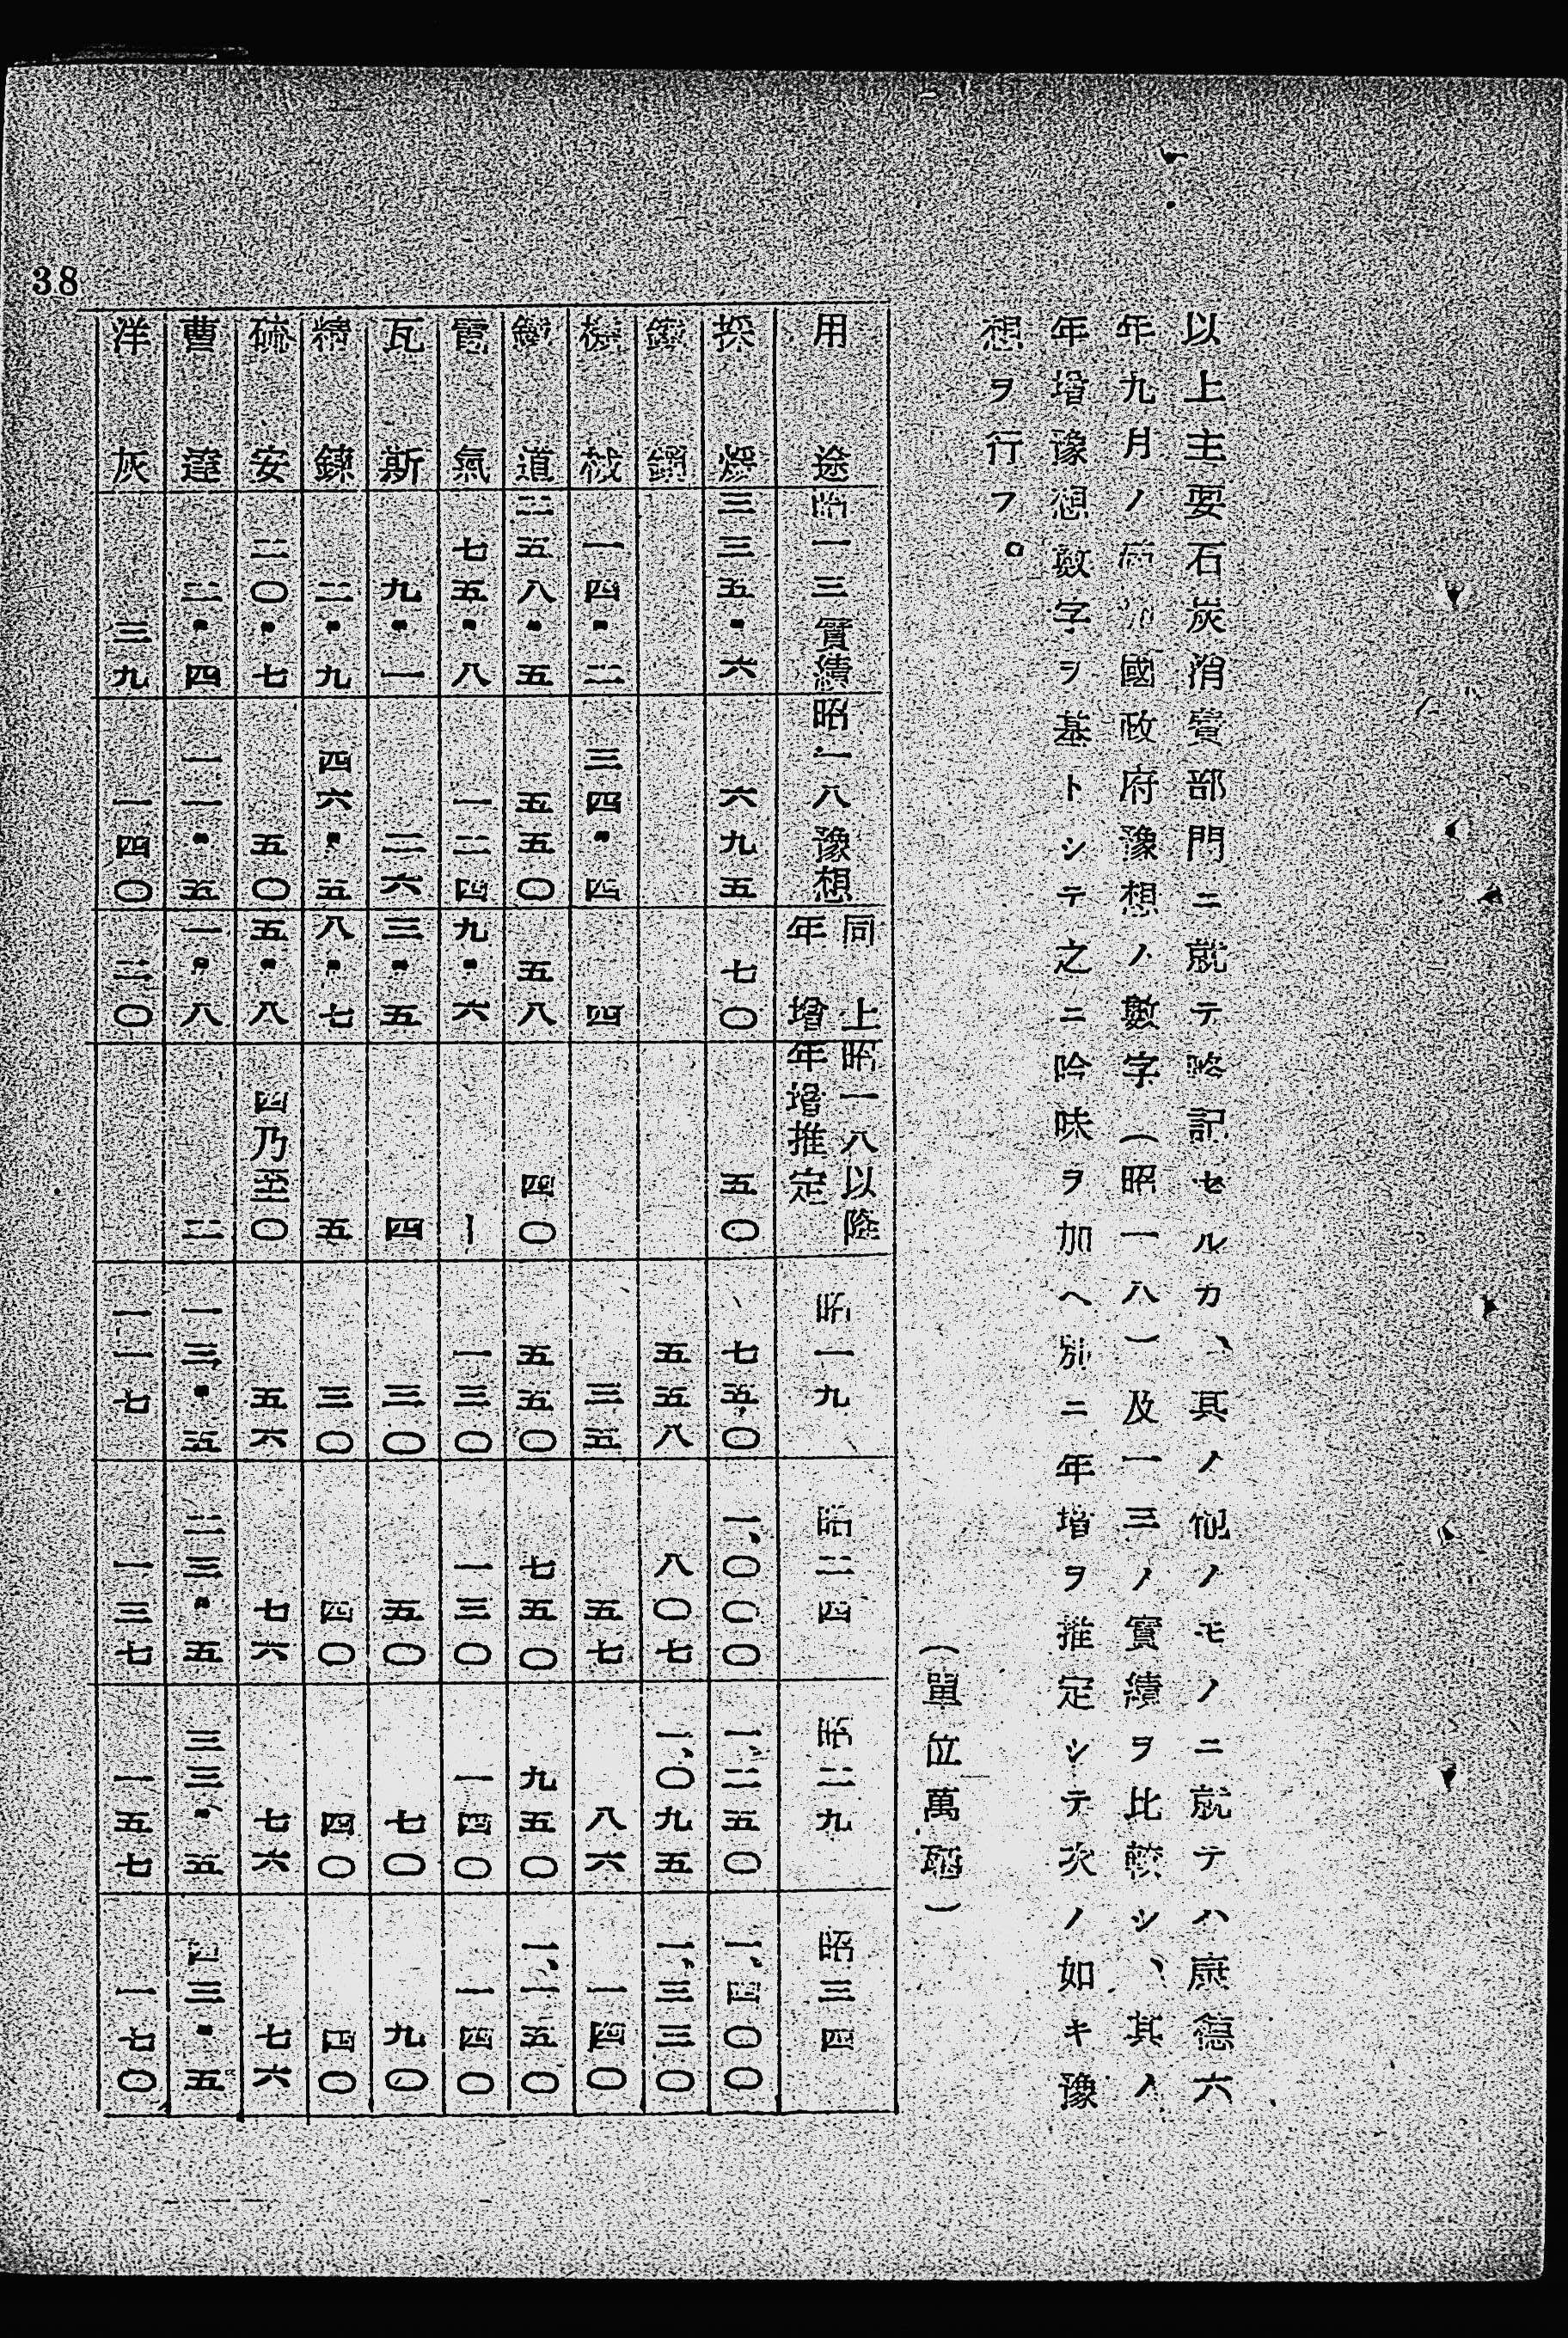 以上主要石炭消費部門ニ就テ略記セルカ、其ノ他ノモノニ就テハ康德六
年九月ノ滿洲國政府豫想ノ數字(昭一八)及一三ノ實績ヲ比較シ、其ノ
年增豫想數字ヲ基トシテ之ニ吟味ヲ加ヘ別ニ年增ヲ推定シテ次ノ如キ豫
想ヲ行フ。
(單位萬瓲)
用途 昭一三實績 昭一八豫想 同上年增 昭一八以降年增推定 昭一九 昭二四 昭二九 昭三四
採煖 三三五・六 六九五 七〇 五〇 七五〇 一、〇〇〇 一、二五〇 一、四〇〇
鐵鋼 五五八 八〇七 一、〇九五 一、三三〇
機械 一四・二 三四・四 四 三五 五七 八六 一四〇
鐵道 二五八・五 五五〇 五八 四〇 五五〇 七五〇 九五〇 一、一五〇
電氣 七五・八 一二四 九・六 一 一三〇 一三〇 一四〇 一四〇
瓦斯 九・一 二六 三・五 四 三〇 五〇 七〇 九〇
精鍊 二・九 四六・五 八・七 五 三〇 四〇 四〇 四〇
硫安 二〇・七 五〇 五・八 四乃至〇 五六 七六 七六 七六
曹達 二・四 一一・五 一・八 二 一三・五 二三・五 三三・五 四三・五
洋灰 三九 一四〇 二〇 一一七 一三七 一五七 一七〇
38